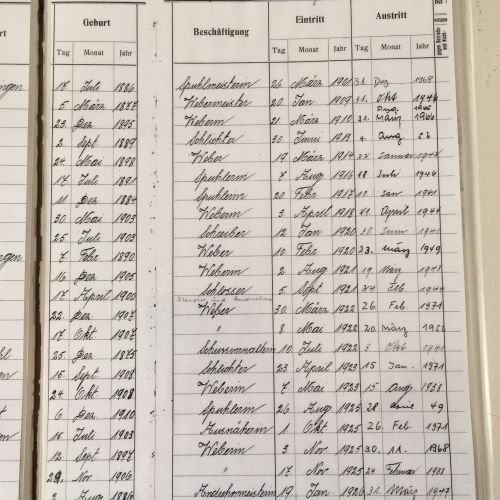 Geburt Beschäftigung Eintritt Austritt
Tag Monat Jahr Tag Monat Jahr Tag Monat Jahr
17 Juli 1886 Spuhlmeisterin 26 März 1901 31. Dez
5 März 1877 Webermeister 20 Jan 1909 31. Okt 1946
23 Dez 1895 Weberin 21 März 1910 31. März 1966
2 Sept 1889 Schlichter 30 Juni 1913 Aug
24 Mai 1898 Weber 19 März 1914
17 Juli 1891 Spuhlerin 7 Aug 1916 18 Juli 1946
11 Dez 1884 Spuhlerin 20 Febr 1917 10 Jan 1941
30 Mai 1903 Weberin 3 April 1918 April
25 Juli 1903 Schreiber 12 Jan 1920 30
ngen 7 Febr 1890 Weber 10 Febr 1920 23. März 1949
16 Dez 1905 Weberin 2 Aug 1921 19 März 1943
17 April 1900 Schlosser 5 Sept 1921 24 Feb
22 Dez 1907 Weber 30 März 1922 26. Feb 1971
17 Okt 1907 " 8 Mai 1922 20 März
25 Dez 1875 10 Juli 1922 3 Okt
15 Sept 1908 Schlichter 23 April 1923 15 Jan. 1971
24 Okt 1908 Weberin 7 Mai 1923 15 Aug 1938
6 Dez 1910 Spuhlerin 26 Aug 1925 28. 49
15 Juli 1903 1 Okt 1925 26. Feb. 1971
12 Sept 1897 Weberin 3 Nov 1925 30. 11. 1968
29. Nov 1906 " 17 Nov 1925 24 Februar 1938
3 Aug 1886 19 Jan 1926 31. März